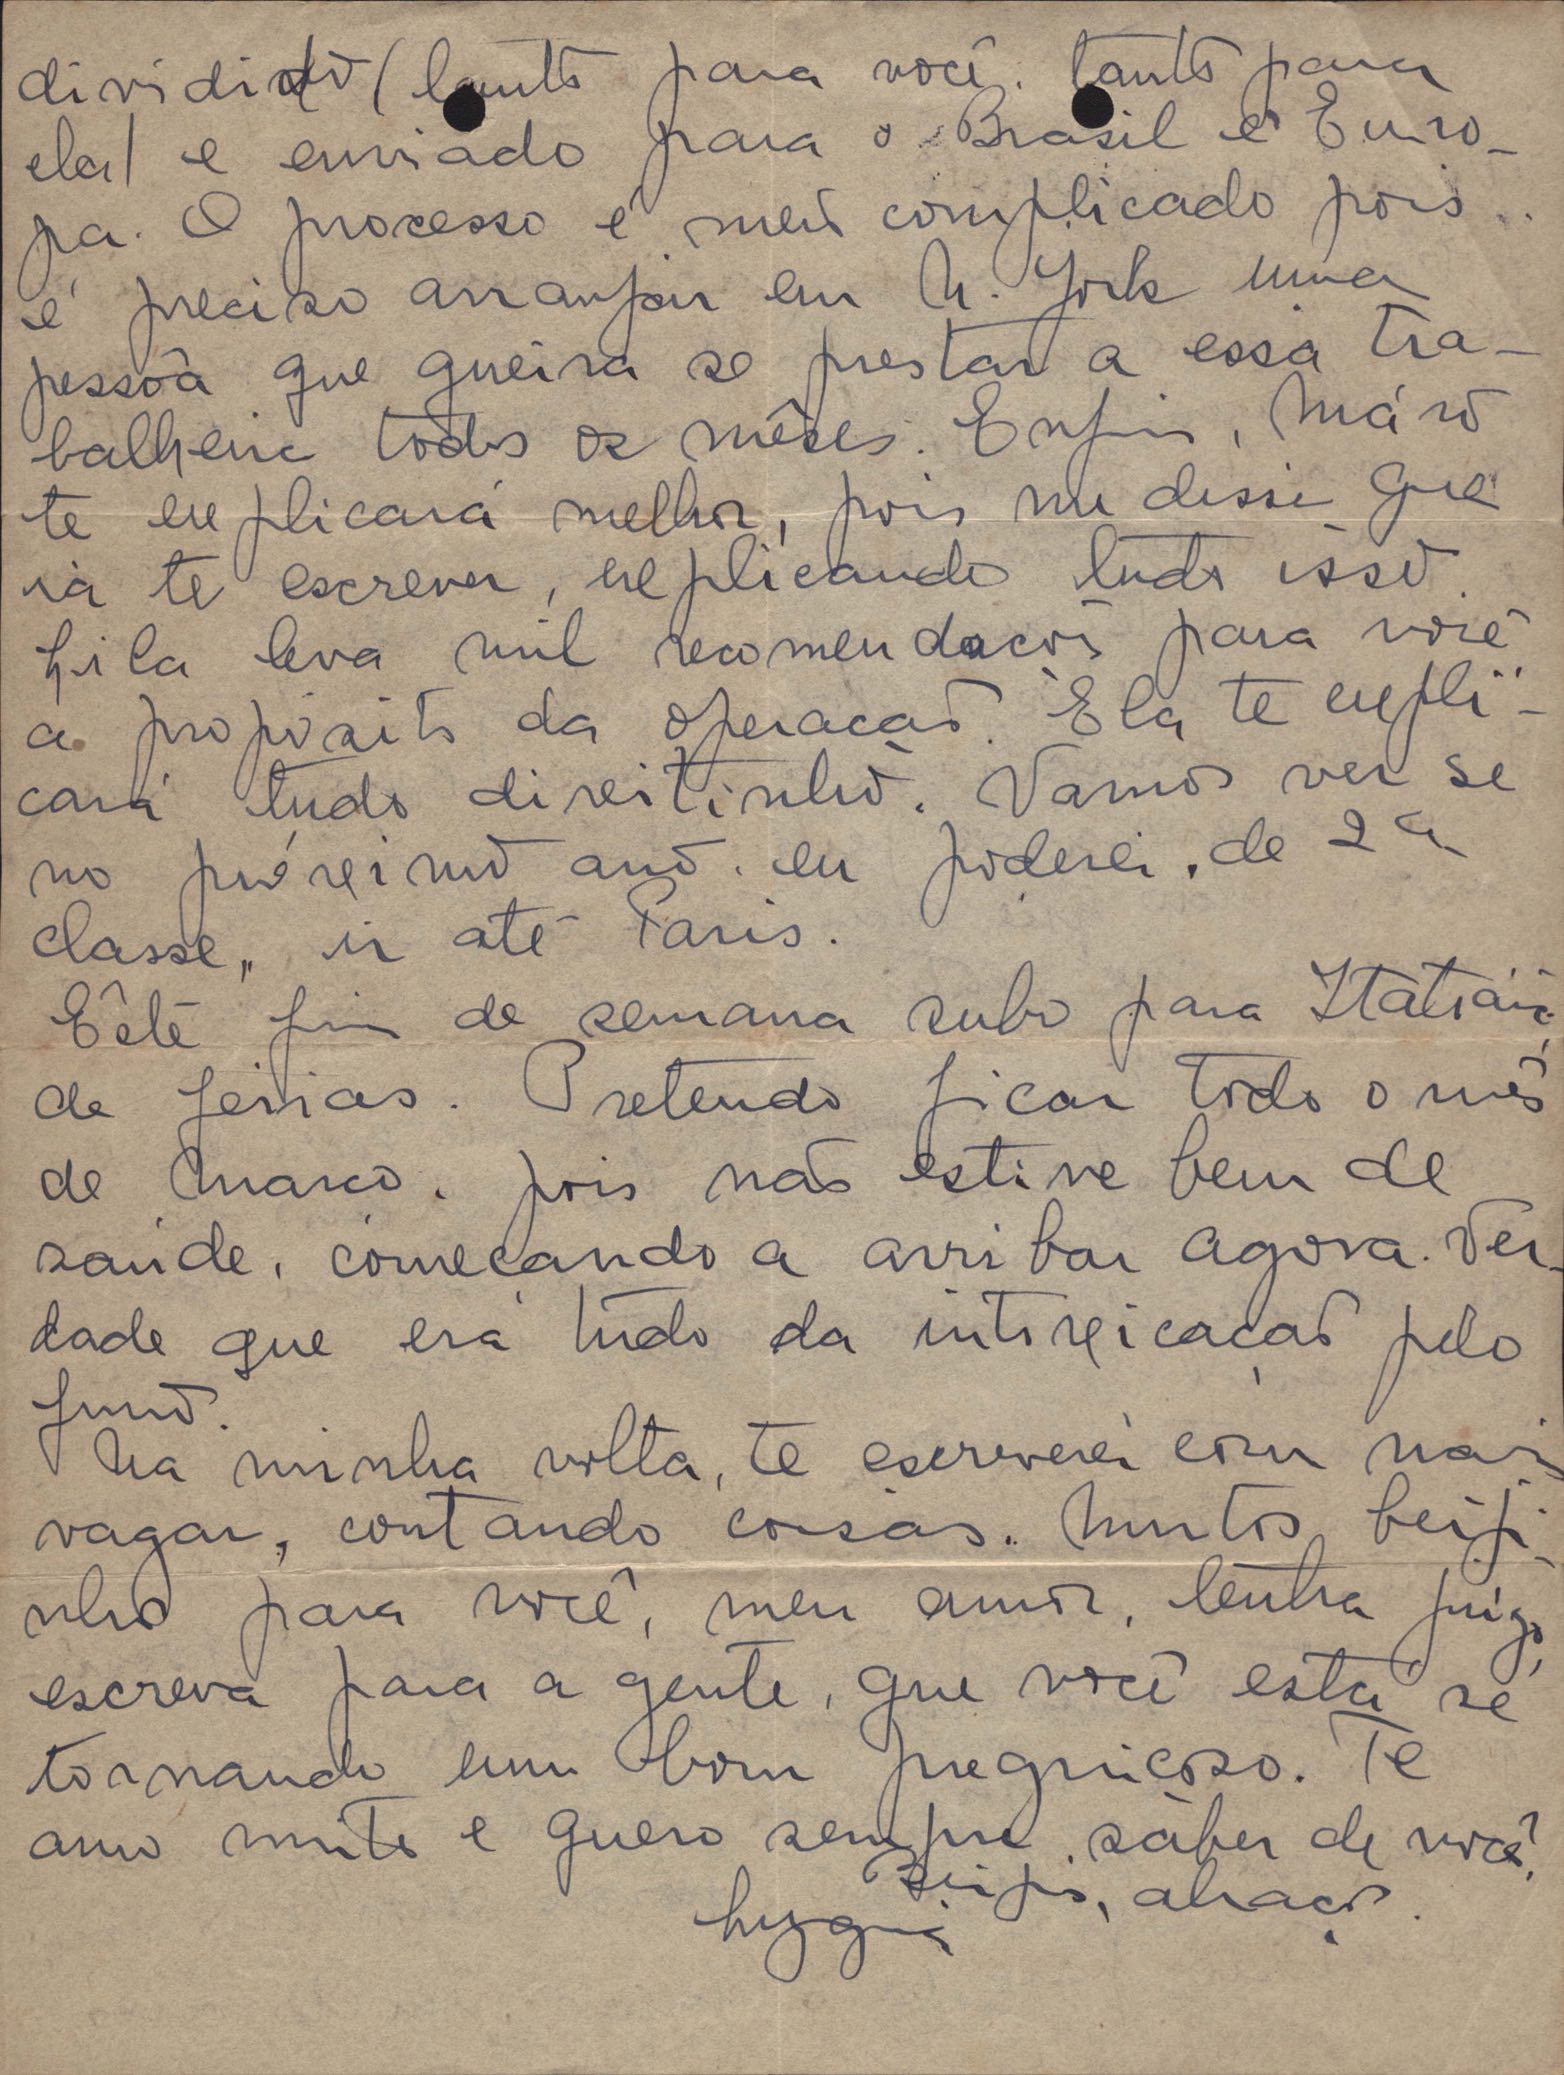 dividido (tanto para você, tanto para
ela) e enviado para o Brasil e Euro-
pa. O processo é meio complicado pois
é preciso arranjar em N. York uma
pessoa que queira se prestar a essa tra-
balheira todos os mêses. Enfim, Mário
te explicará melhor, pois me disse que
ia te escrever, explicando tudo isso.
leva mil recomendações para você
a proposito da operação. Ela te expli-
cará tudo direitinho. Vamos ver se
no próximo ano eu poderei, de 2a
classe, ir até Paris.
Êste fim de semana subo para Itatiaia,
de férias. Pretendo ficar todo o mês
de Março, pois não estive bem de
saúde, começando a arribar agora. Ver-
dade que era tudo da intoxicação pelo
fumo.
Na minha volta, te escreverei com mais
vagar, contando coisas. Muitos beiji-
nhos para você, meu amor, tenha juizo,
escreva para a gente, que você está se
tornando um bom preguiçoso. Te
amo muito e quero sempre saber de você.
Beijos, abraços.
Lygia